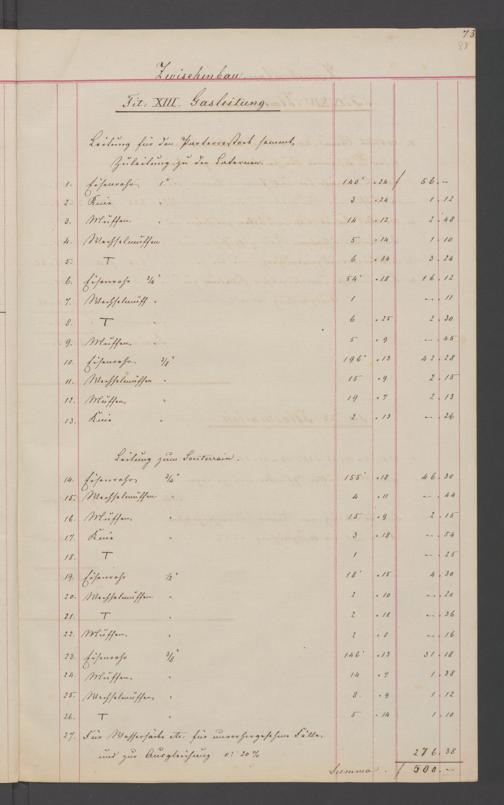 73
Zwischenbau.
Tit: XIII. Gasleitung.
Leitung für den Parterrestock sammt
Zuleitung zu den Laternen.
1. Eisenrohr 1" 140' " 24 f 56. –
2. Knie " 3 " 24 1. 12
3. Muffen " 14 " 12 2. 48
4. Wechselmuffen 5 " 14 1. 10
5. T 6 " 14 3. 24
6. Eisenrohr 3/4" 54' " 18 16. 12
7. Wechselmuff " 1 –. 11
8. T " 6 " 25 2. 30
9. Muffen " 5 " 9 –. 45
10. Eisenrohr 196' " 13 42. 28
11. Wechselmuffen " 15 " 9 2. 15
12. Muffen " 19 " 7 2. 13
13. Knie " 2 " 13 –. 26
Leitung zum Souterrain.
14. Eisenrohr 3/4" 155' " 18 46. 30
15. Wechselmuffen " 4 " 11 –. 44
16. Muffen " 15 " 9 2. 15
17. Knie " 3 " 18 –. 54
18. T " 1 –. 25
19. Eisenrohr 1/2" 18' " 15 4. 30
20. Wechselmuffen " 2 " 10 –. 20
21. T " 2 " 18 –. 36
22. Muffen " 2 " 8 –. 16
23. Eisenrohr 3/8" 146' " 13 31. 18
24. Muffen " 14 " 7 1. 38
25. Wechselmuffen " 8 " 9 1. 12
26. T " 5 " 14 1. 10
27. Für Wassersäcke etc. für unvorhergesehene Fälle
und zur Ausgleichung 20 % 276. 38
Summa f 500. –